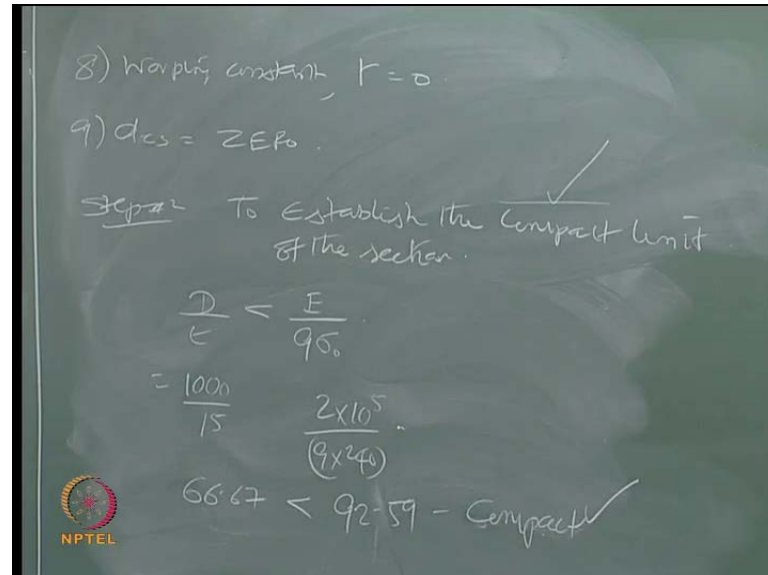 8) Warping constant, Γ = 0.
9) dcs = ZERO.
Step #2 To Establish the Compact limit
of the section.
D/t < E/9σ₀.
= 1000/15 2×10⁵/(9×240).
66.67 < 92.59 - Compact ✓
NPTEL